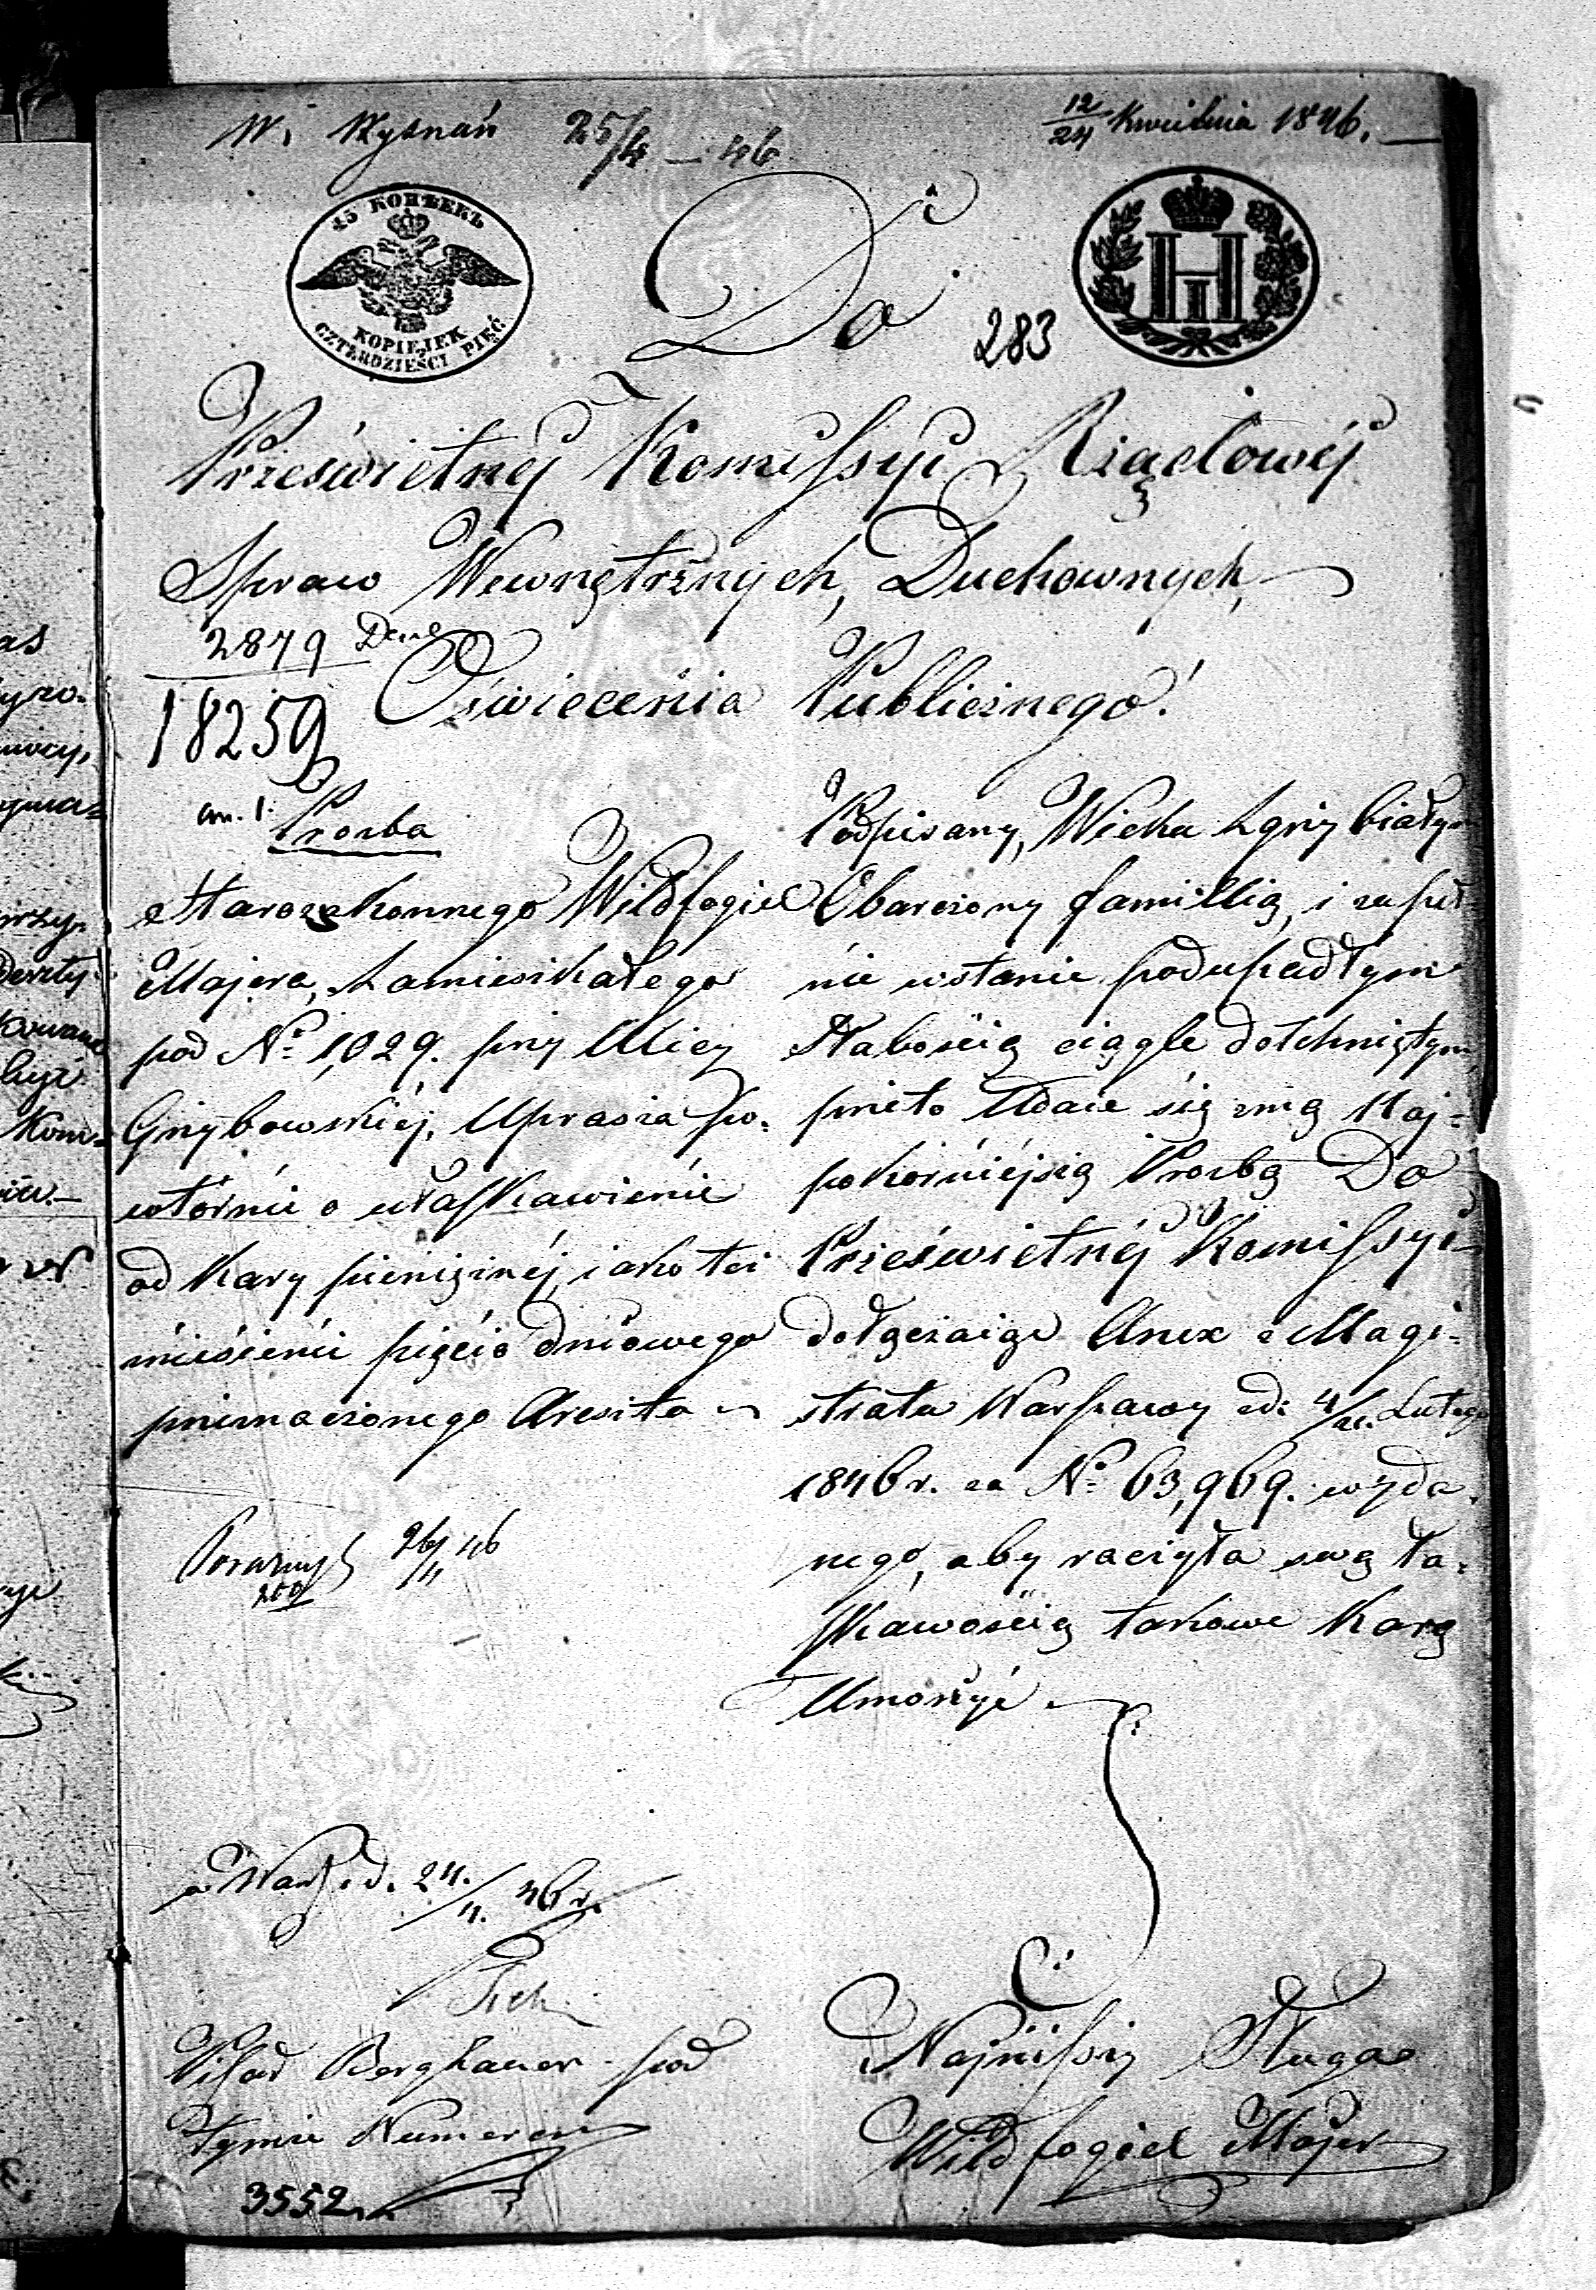 W. Wyznań 25/4 – 46
12/24 Kwietnia 1846.
45 КОПѢЕКЪ
KOPIEJEK
CZTERDZIEŚCI PIĘĆ
Do
283
Prześwietnéj Komissyi Rządowéj
Spraw Wewnętrznych, Duchownych,
2879
Oświecenia Publicznego!
18259
an. 1.
Prozba
Starozakonnego Wildfogiel
Majera, Zamieszkałego
pod No 1,029. przy Ulicy
Grzybowskiéj, Uprasza po-
wtórnie o ułaskawienie
od Kary pieniężnéj, iako też
pięcio dniowego
przeznaczonego Aresztu
Podpisany, Wieku Zgrzybiałym
Obarczony famillią, i zupeł-
nie wstanie podupadłym
Słabością ciągle dotchniętym,
przeto Udaie się zną Naj-
pokorniéjszą Prozbą Do
Prześwietnéj Komissyi
dołączaiąc Anex z Magi-
stratu Warszawy Lutego
1846 r. za No 63,969. wyda-
nego, aby raczyła swą ła-
skawością takowe Karę
Umorzyć
26/4 46
w Warsz. d. 24./4. 46 r.
Pisał Berghauer pod
Tymże Numerem
Najniższy Sługa
Wildfogiel Majer
3552